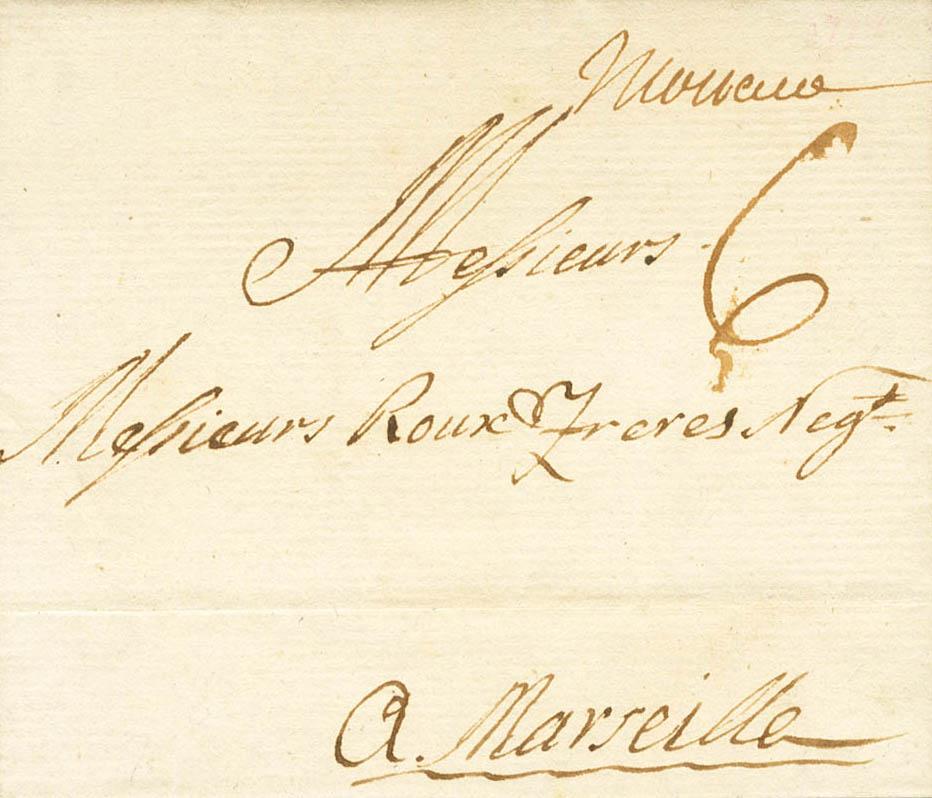 Messieurs 6
Messieurs Roux & Freres Negt.
A Marseille